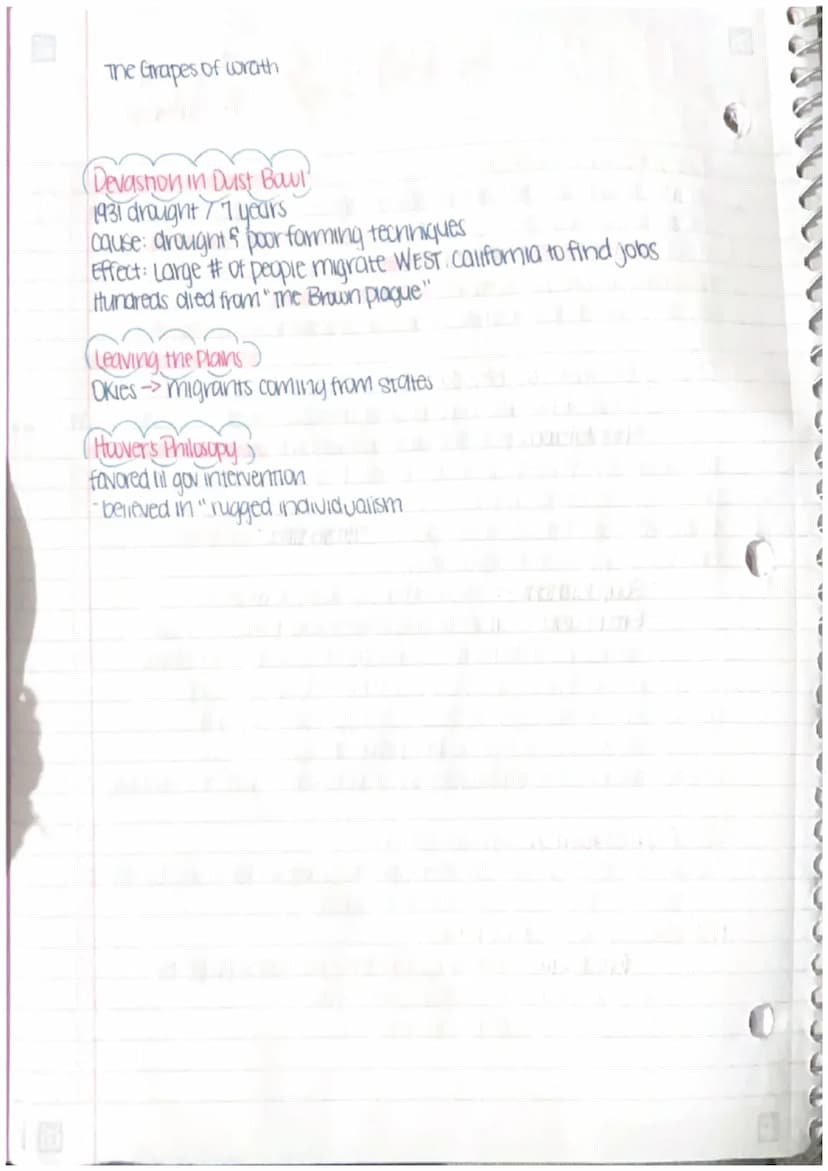 The Grapes of Wrath
Devastion in Dust Bowl
1931 drought / 7 years
cause: drought & poor farming techniques
Effect: Large # of people migrate WEST. California to find jobs
Hundreds died from "The Brown plague"
Leaving the Plains
Okies -> migrants coming from states
Hoover's Philosopy
favored lil gov intervention
-believed in "rugged individualism